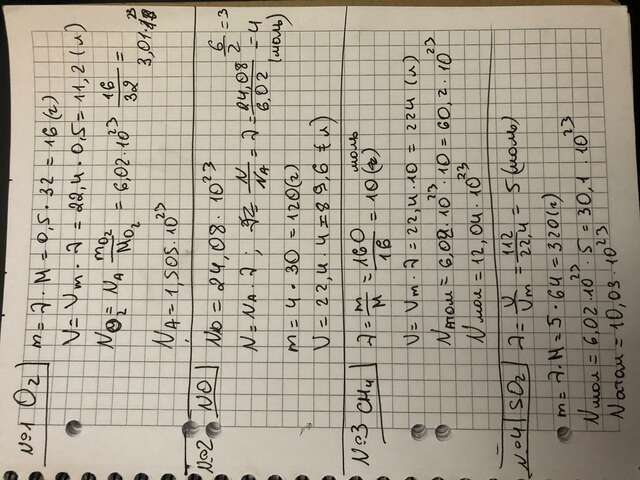 №1 O₂
m = ν · M = 0,5 · 32 = 16 (г)
V = Vm · ν = 22,4 · 0,5 = 11,2 (л)
N O₂ = NA mO₂/MO₂ = 6,02 · 10²³ 16/32 = 3,01 · 10²³
NA = 1,505 · 10²³
№2 NO
NO = 24,08 · 10²³ 6/2 = 3
N = NA · ν ; N/NA = ν = 24,08/6,02 = 4 (моль)
m = 4 · 30 = 120 (г)
V = 22,4 · 4 = 89,6 (л)
№3 CH₄
ν = m/M = 160/16 = 10 моль (г)
V = Vm · ν = 22,4 · 10 = 224 (л)
Nатом = 6,02 · 10²³ · 10 = 60,2 · 10²³
Nмол = 12,04 · 10²³
№4 SO₂
ν = V/Vm = 112/22,4 = 5 (моль)
m = ν · M = 5 · 64 = 320 (г)
Nмол = 6,02 · 10²³ · 5 = 30,1 · 10²³
Nатом = 10,03 · 10²³